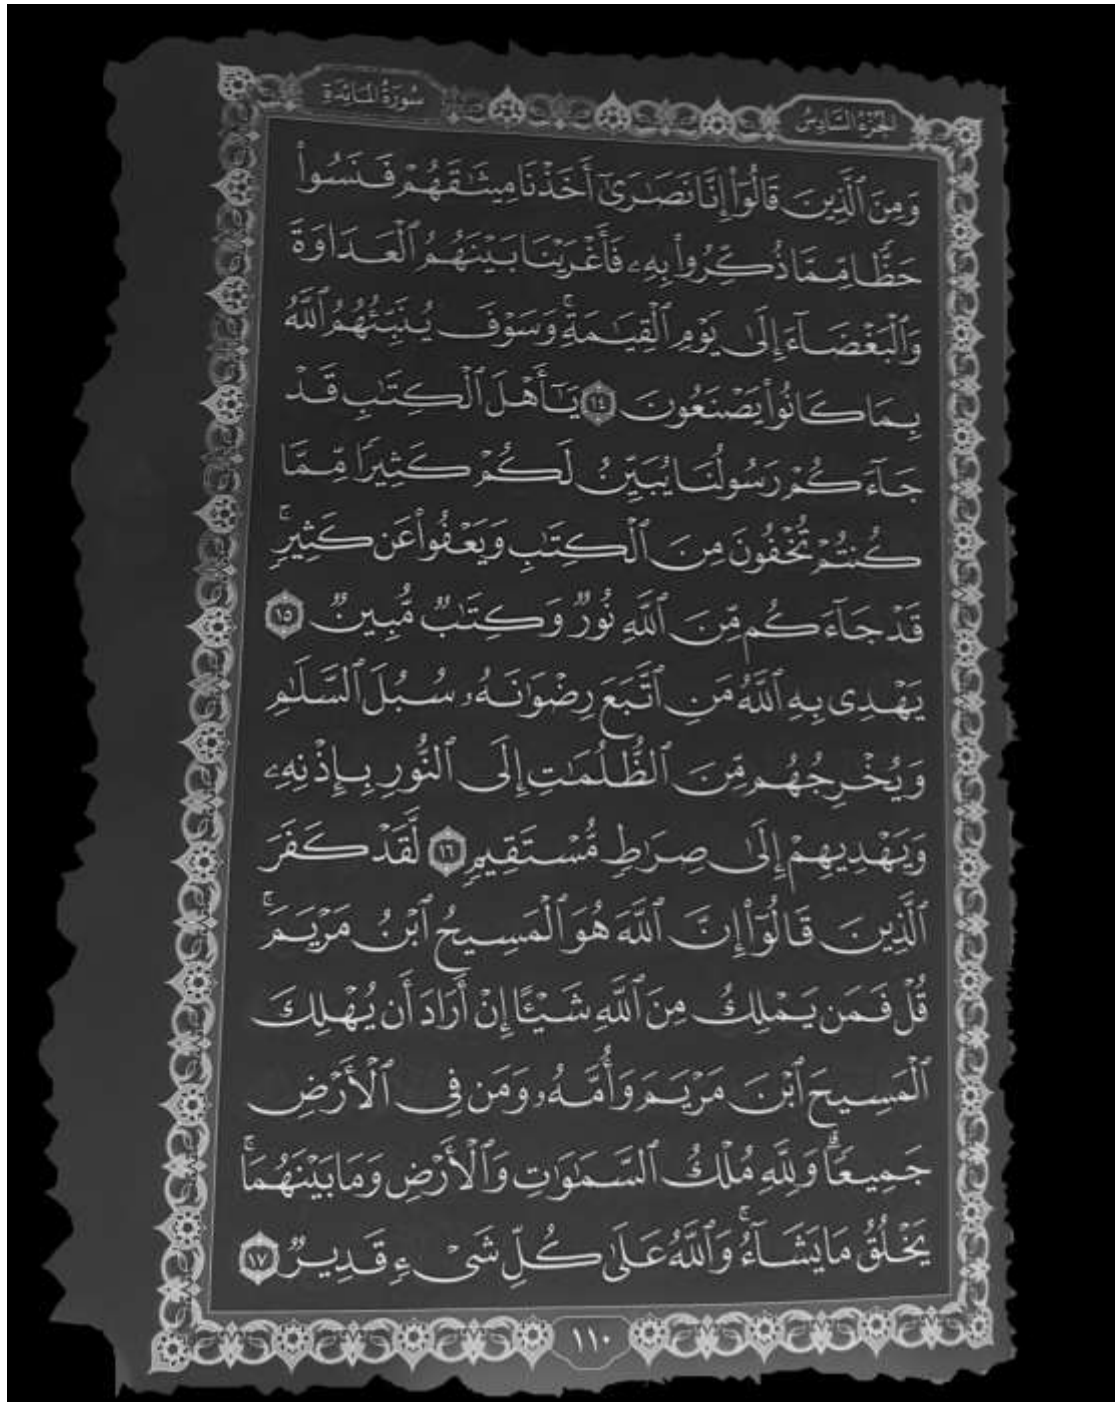 الجزء السادس
سورة المائدة
وَمِنَ ٱلَّذِينَ قَالُوٓا۟ إِنَّا نَصَـٰرَىٰٓ أَخَذْنَا مِيثَـٰقَهُمْ فَنَسُوا۟
حَظًّا مِّمَّا ذُكِّرُوا۟ بِهِۦ فَأَغْرَيْنَا بَيْنَهُمُ ٱلْعَدَاوَةَ
وَٱلْبَغْضَآءَ إِلَىٰ يَوْمِ ٱلْقِيَـٰمَةِ ۚ وَسَوْفَ يُنَبِّئُهُمُ ٱللَّهُ
بِمَا كَانُوا۟ يَصْنَعُونَ ١٤ يَـٰٓأَهْلَ ٱلْكِتَـٰبِ قَدْ
جَآءَكُمْ رَسُولُنَا يُبَيِّنُ لَكُمْ كَثِيرًا مِّمَّا
كُنتُمْ تُخْفُونَ مِنَ ٱلْكِتَـٰبِ وَيَعْفُوا۟ عَن كَثِيرٍ ۚ
قَدْ جَآءَكُم مِّنَ ٱللَّهِ نُورٌ وَكِتَـٰبٌ مُّبِينٌ ١٥
يَهْدِى بِهِ ٱللَّهُ مَنِ ٱتَّبَعَ رِضْوَٰنَهُۥ سُبُلَ ٱلسَّلَـٰمِ
وَيُخْرِجُهُم مِّنَ ٱلظُّلُمَـٰتِ إِلَى ٱلنُّورِ بِإِذْنِهِۦ
وَيَهْدِيهِمْ إِلَىٰ صِرَٰطٍ مُّسْتَقِيمٍ ١٦ لَّقَدْ كَفَرَ
ٱلَّذِينَ قَالُوٓا۟ إِنَّ ٱللَّهَ هُوَ ٱلْمَسِيحُ ٱبْنُ مَرْيَمَ ۚ
قُلْ فَمَن يَمْلِكُ مِنَ ٱللَّهِ شَيْـًٔا إِنْ أَرَادَ أَن يُهْلِكَ
ٱلْمَسِيحَ ٱبْنَ مَرْيَمَ وَأُمَّهُۥ وَمَن فِى ٱلْأَرْضِ
جَمِيعًا ۗ وَلِلَّهِ مُلْكُ ٱلسَّمَـٰوَٰتِ وَٱلْأَرْضِ وَمَا بَيْنَهُمَا ۚ
يَخْلُقُ مَا يَشَآءُ ۚ وَٱللَّهُ عَلَىٰ كُلِّ شَىْءٍ قَدِيرٌ ١٧
١١٠